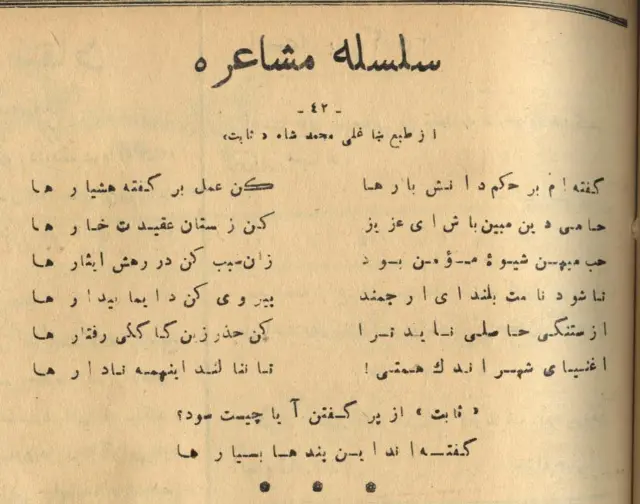 سلسله مشاعره
- ٤٢ -
از طبع ښاغلی محمد شاه «ثابت»
گفته ام بر حکم دانش بارها کن عمل بر گفته هشیارها
حامی دین مبین باش ای عزیز کن زستان عقیدت خارها
حب میهن شیوۀ مؤمن بود زان سبب کن در رهش ایثارها
تا شود نامت بلند ای ارجمند پیروی کن دایما بیدارها
از ستنگی حاصلی ناید ترا کن حذر زین گاگلی رفتارها
اغنیای شهر اندک همتی! تا ننالند اینهمه نادارها
«ثابت» از پر گفتن آیا چیست سود؟
گفته اند این پند ها بسیار ها